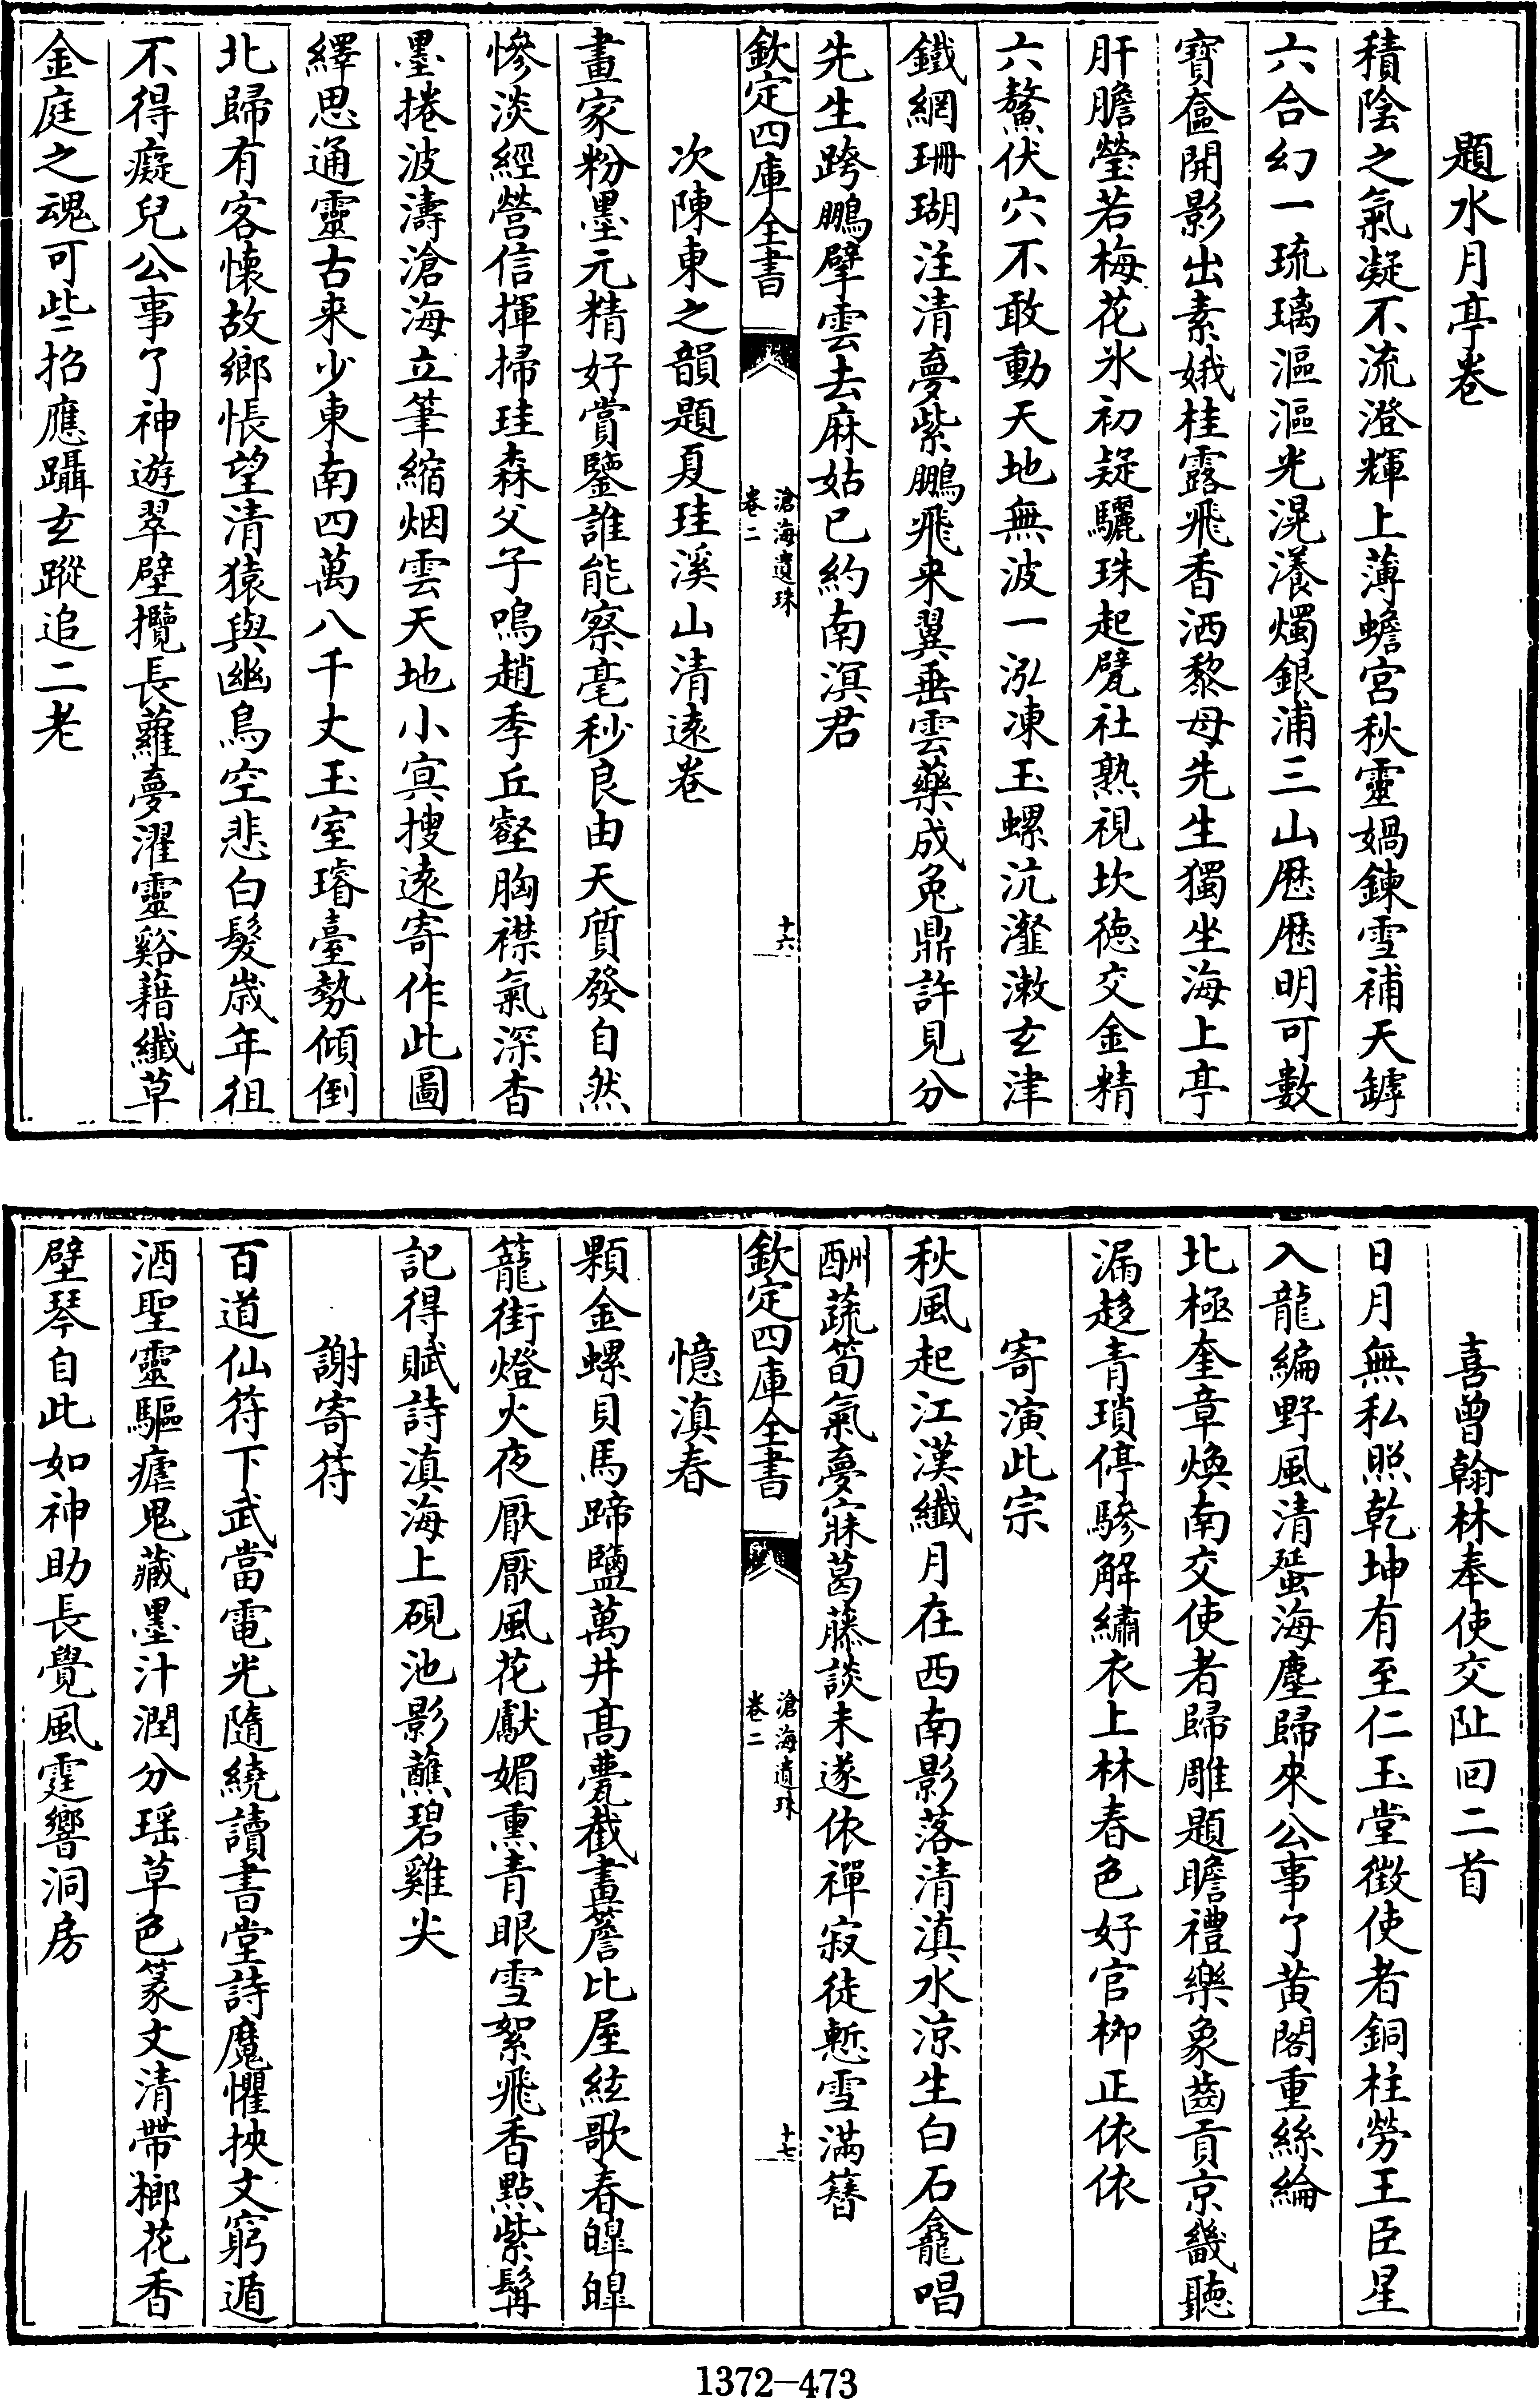 題水月亭卷
積陰之氣凝不流澄輝上薄蟾宮秋靈媧鍊雪補天罅
六合幻一琉璃漚漚光滉瀁燭銀浦三山歴歴明可數
寶奩開影出素娥桂露飛香洒黎母先生獨坐海上亭
肝膽瑩若梅花氷初疑驪珠起甓社熟視坎德交金精
六鰲伏穴不敢動天地無波一泓凍玉螺沆瀣漱玄津
鐵網珊瑚注清夢紫鵬飛来翼垂雲藥成兔鼎許見分
先生跨鵬擘雲去麻姑已約南溟君
欽定四庫全書
滄海遺珠
卷二
十六
次陳東之韻題夏珪溪山清遠卷
畫家粉墨元精好賞鑒誰能察毫秒良由天質發自然
慘淡經營信揮掃珪森父子鳴趙季丘壑胸襟氣深杳
墨捲波濤滄海立筆縮烟雲天地小寘搜遠寄作此圖
繹思通靈古来少東南四萬八千丈玉室璿臺勢傾倒
北歸有客懷故鄉悵望清猿與幽鳥空悲白髮歲年徂
不得癡兒公事了神遊翠壁攬長蘿夢濯靈谿藉纖草
金庭之魂可些招應躡玄蹤追二老
喜曾翰林奉使交阯回二首
日月無私照乾坤有至仁玉堂徵使者銅柱勞王臣星
入龍編野風清蜑海塵歸來公事了黄閣重絲綸
北極奎章煥南交使者歸雕題瞻禮樂象齒貢京畿聽
漏趍青瑣停驂解繡衣上林春色好官柳正依依
寄演此宗
秋風起江漢纖月在西南影落清滇水凉生白石龕唱
酬蔬筍氣夢寐葛藤談未遂依禪寂徒慙雪滿簪
欽定四庫全書
滄海遺珠
卷二
十七
憶滇春
顆金螺貝馬蹄鹽萬井髙甍截畫簷比屋絃歌春皥皥
籠街燈火夜厭厭風花獻媚熏青眼雪絮飛香點紫髯
記得賦詩滇海上硯池影蘸碧雞尖
謝寄符
百道仙符下武當電光隨繞讀書堂詩魔懼抰文窮遁
酒聖靈驅瘧鬼藏墨汁潤分瑶草色篆文清帶榔花香
壁琴自此如神助長覺風霆響洞房
1372—473